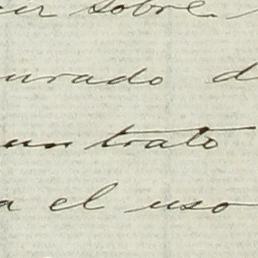 er sobre
urado d
un trato
a el uso